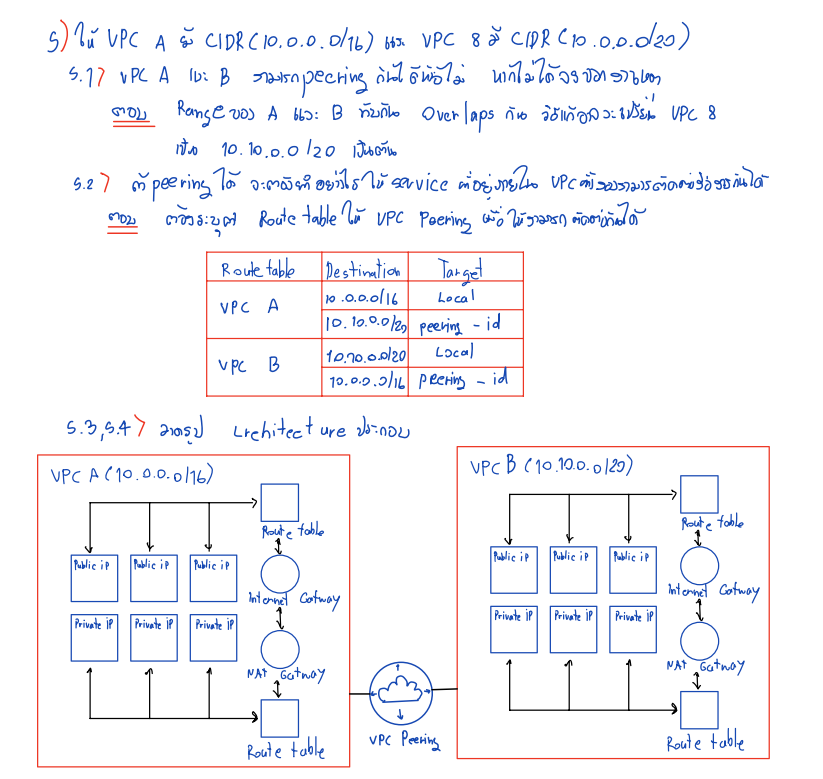 5) ให้ VPC A มี CIDR (10.0.0.0/16) และ VPC B มี CIDR (10.0.0.0/20)
5.1> VPC A และ B สามารถ peering กันได้หรือไม่ หากไม่ได้จงบอกสาเหตุ
ตอบ Range ของ A และ B ทับกัน Overlaps กัน วิธีแก้อาจจะเปลี่ยน VPC B
เป็น 10.10.0.0/20 เป็นต้น
5.2> ถ้า peering ได้ จะต้องทำอย่างไรให้ service ที่อยู่ภายใน VPC ทั้งสองสามารถติดต่อสื่อสารกันได้
ตอบ ต้องระบุ Route table ให้ VPC Peering เพื่อให้สามารถติดต่อกันได้
Route table Destination Target
VPC A
10.0.0.0/16 Local
10.10.0.0/20 peering - id
VPC B
10.10.0.0/20 Local
10.0.0.0/16 peering - id
5.3, 5.4> วาดรูป Architecture ประกอบ
VPC A (10.0.0.0/16)
Route table
Public iP Public iP Public iP
Internet Gatway
Private iP Private iP Private iP
NAT Gatway
Route table
VPC Peering
VPC B (10.10.0.0/20)
Route table
Public iP Public iP Public iP
Internet Gatway
Private iP Private iP Private iP
NAT Gatway
Route table